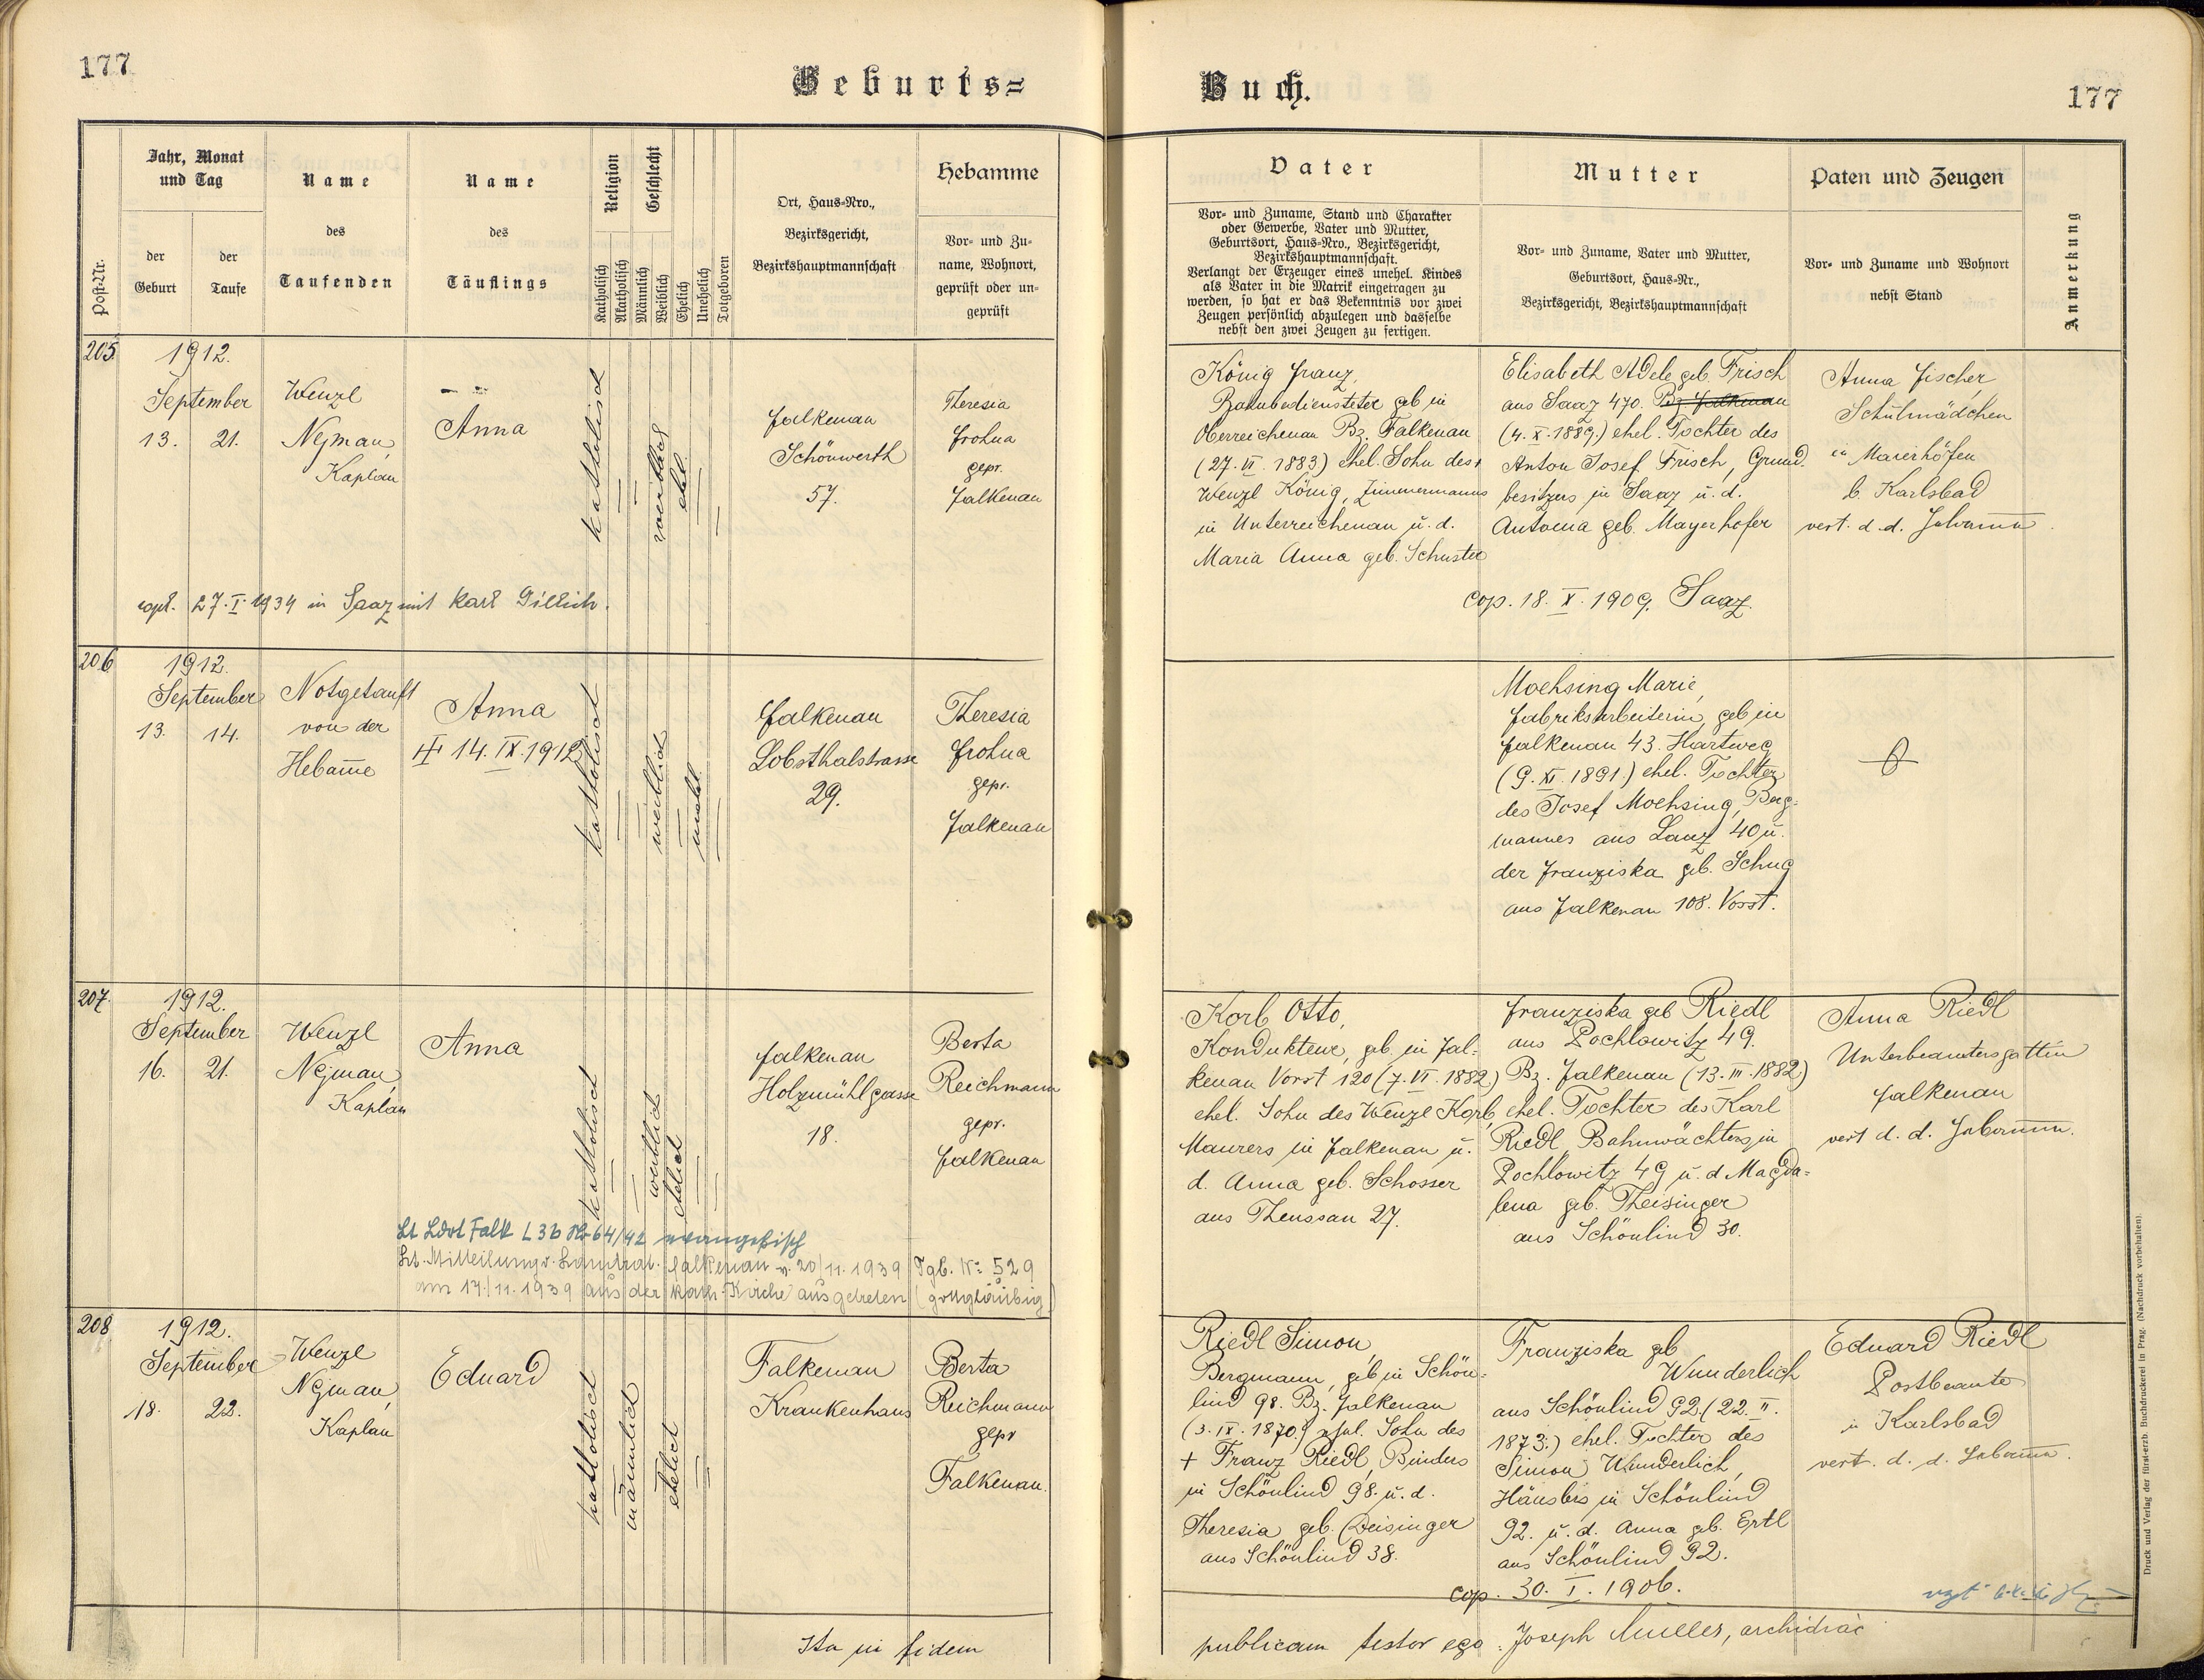 177
Geburts=
Buch.
177
Post-Nr.
Jahr, Monat
und Tag
der
Geburt
der
Taufe
Name
des
Taufenden
Name
des
Täuflings
Religion
Katholisch
Akatholisch
Geschlecht
Männlich
Weiblich
Ehelich
Unehelich
Totgeboren
Ort, Haus-Nro.,
Bezirksgericht,
Bezirkshauptmannschaft
Hebamme
Vor- und Zu-
name, Wohnort,
geprüft oder un-
geprüft
Vater
Vor- und Zuname, Stand und Charakter
oder Gewerbe, Vater und Mutter,
Geburtsort, Haus-Nro., Bezirksgericht,
Bezirkshauptmannschaft.
Verlangt der Erzeuger eines unehel. Kindes
als Vater in die Matrik eingetragen zu
werden, so hat er das Bekenntnis vor zwei
Zeugen persönlich abzulegen und dasselbe
nebst den zwei Zeugen zu fertigen.
Mutter
Vor- und Zuname, Vater und Mutter,
Geburtsort, Haus-Nr.,
Bezirksgericht, Bezirkshauptmannschaft
Paten und Zeugen
Vor- und Zuname und Wohnort
nebst Stand
Anmerkung
205
1912.
September
13. 21.
Wenzl
Nejman,
Kaplan
Anna
katholisch
weiblich
ehel.
Falkenau
Schönwerth
57.
Theresia
Frohna
gepr.
Falkenau
König Franz,
Bahnbediensteter geb in
Oberreichenau Bz. Falkenau
(27. VI. 1883) ehel. Sohn des
Wenzl König, Zimmermanns
in Unterreichenau u. d.
Maria Anna geb. Schuster
Elisabeth Adele geb. Frisch
aus Saaz 470. Bz. Falkenau
(4. X. 1889.) ehel. Tochter des
Anton Josef Frisch, Grund-
besitzers in Saaz u. d.
Antonia geb. Mayerhofer
cop. 18. X. 1909. Saaz.
Anna Fischer,
Schulmädchen
in Maierhöfen
b. Karlsbad
vert. d. d. Hebamme
copl. 27. I. 1934 in Saaz mit Karl Gillich.
206
1912.
September
13. 14.
Notgetauft
von der
Hebamme
Anna
† 14. IX. 1912
katholisch
weiblich
unehel.
Falkenau
Lobsthalstrasse
29.
Theresia
Frohna
gepr.
Falkenau
Moehsing Marie,
Fabriksarbeiterin, geb in
Falkenau 43. Hartweg
(9. XI. 1891.) ehel. Tochter
des Josef Moehsing, Berg-
mannes aus Lanz 40 u.
der Franziska geb. Schug
aus Falkenau 108. Vorst.
207.
1912.
September
16. 21.
Wenzl
Nejman,
Kaplan
Anna
katholisch
weiblich
ehelich
Falkenau
Holzmühlgasse
18.
Berta
Reichmann
gepr.
Falkenau
Korb Otto,
Kondukteur, geb. in Fal-
kenau Vorst 120 (7. VI. 1882)
ehel. Sohn des Wenzl Korb,
Maurers in Falkenau u.
d. Anna geb. Schosser
aus Theussau 27.
Franziska geb Riedl
aus Pochlowitz 49.
Bz. Falkenau (13. III. 1882)
ehel. Tochter des Karl
Riedl, Bahnwächters in
Pochlowitz 49 u. d Magda-
lena geb. Theisinger
aus Schönlind 30.
Anna Riedl
Unterbeamtersgattin
Falkenau
vert d. d. Hebamme.
Lt Ldrt Falk L 3b 64/42 evangelisch
Lt. Mitteilung v. Landrat. Falkenau v. 20/11. 1939 Tgb. Nr. 529
am 17./11. 1939 aus der kath. Kirche ausgetreten (gottgläubig)
208
1912.
September
18. 22.
Wenzl
Nejman,
Kaplan
Eduard
katholisch
männlich
ehelich
Falkenau
Krankenhaus
Berta
Reichmann
gepr
Falkenau.
Riedl Simon,
Bergmann, geb in Schön-
lind 98. Bz. Falkenau
(3. IX. 1870.) ehel. Sohn des
+ Franz Riedl, Binders
in Schönlind 98. u. d.
Theresia geb. Deisinger
aus Schönlind 38.
Franziska geb
Wunderlich
aus Schönlind 92. (22. II.
1873.) ehel. Tochter des
Simon Wunderlich,
Häuslers in Schönlind
92. u. d. Anna geb. Ertl
aus Schönlind 92.
cop. 30. I. 1906.
Eduard Riedl
Postbeamte
in Karlsbad
vert. d. d. Hebamme.
Ita in fidem
publicam testor ego: Joseph Mueller, archidiac
Druck und Verlag der fürst-erzb. Buchdruckerei in Prag. (Nachdruck vorbehalten).